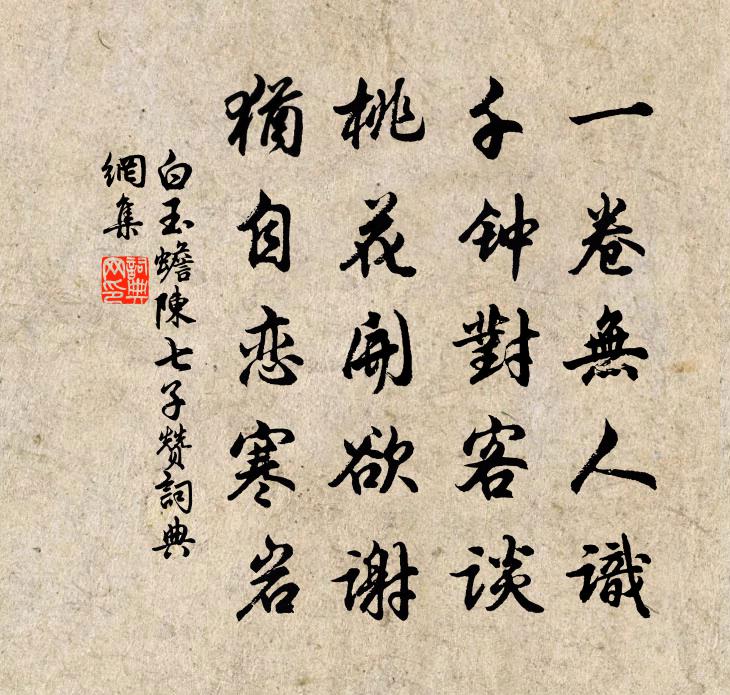 一卷無人識
千钟對客谈
桃花開欲谢
猶自恋寒岩
白玉蟾陳七子赞詞典
網集
詞典
网印